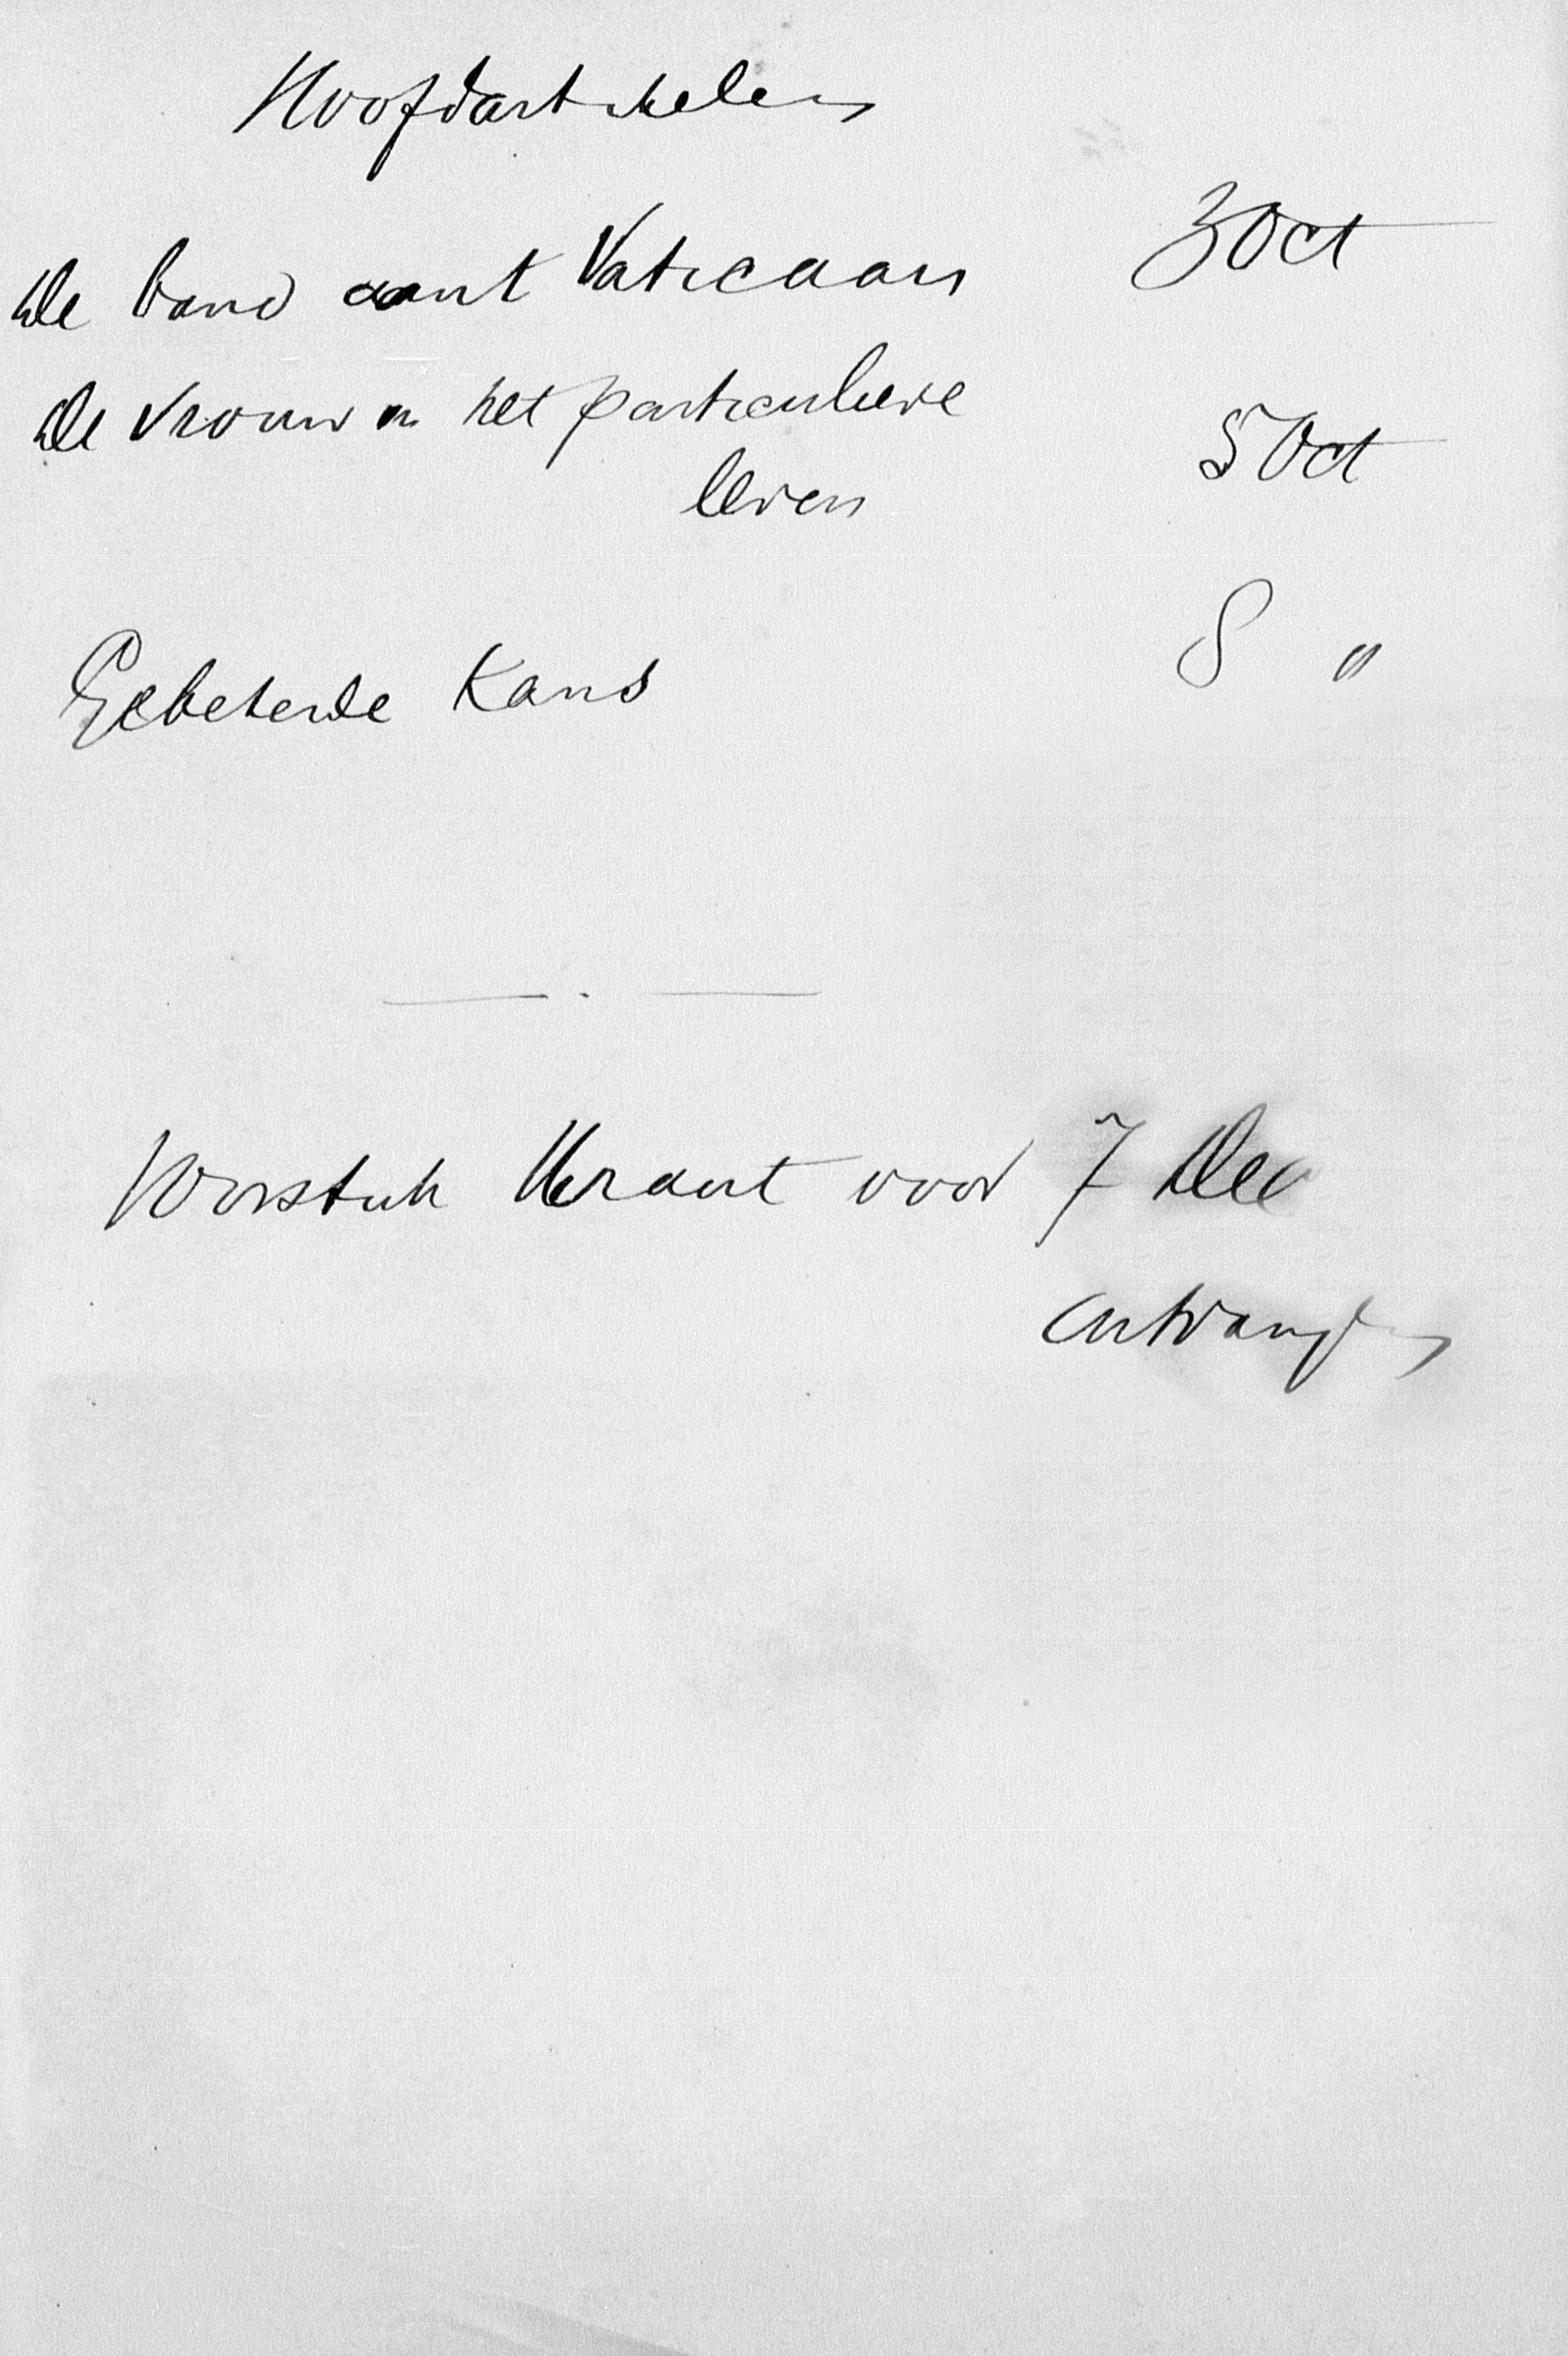 Hoofdartikelen
De band aan't Vaticaan 3 Oct
De vrouw in het particuliere 5 Oct
leven
Gebeterde Kans 8 "
Voorstuk Kraut voor 7 Dec
ontvangen